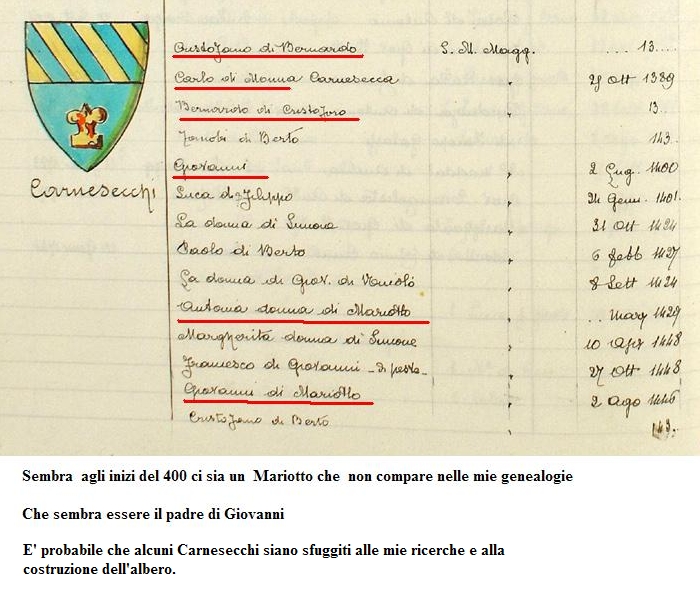 Cristofano di Bernardo S. M. Magg. .... 13....
Carlo di Monna Carnesecca " 29 Ott 1389
Bernardo di Cristofano " 13..
Zanobi di Berto " 143.
Giovanni " 2 Lug. 1400
Luca di Filippo " 24 Genn. 1401.
La donna di Simone " 31 Ott 1424
Paolo di Berto " 6 febb 1427
La donna di Giov. di " 8 Sett 1424
Antonia donna di Mariotto " .. marz 1429
Margherita donna di Simone " 10 Apr 1448
Francesco di Giovanni - di peste - " 27 Ott 1448
Giovanni di Mariotto " 2 Ago 1446
Cristofano di Berto "
Carnesecchi
Sembra agli inizi del 400 ci sia un Mariotto che non compare nelle mie genealogie
Che sembra essere il padre di Giovanni
E' probabile che alcuni Carnesecchi siano sfuggiti alle mie ricerche e alla
costruzione dell'albero.